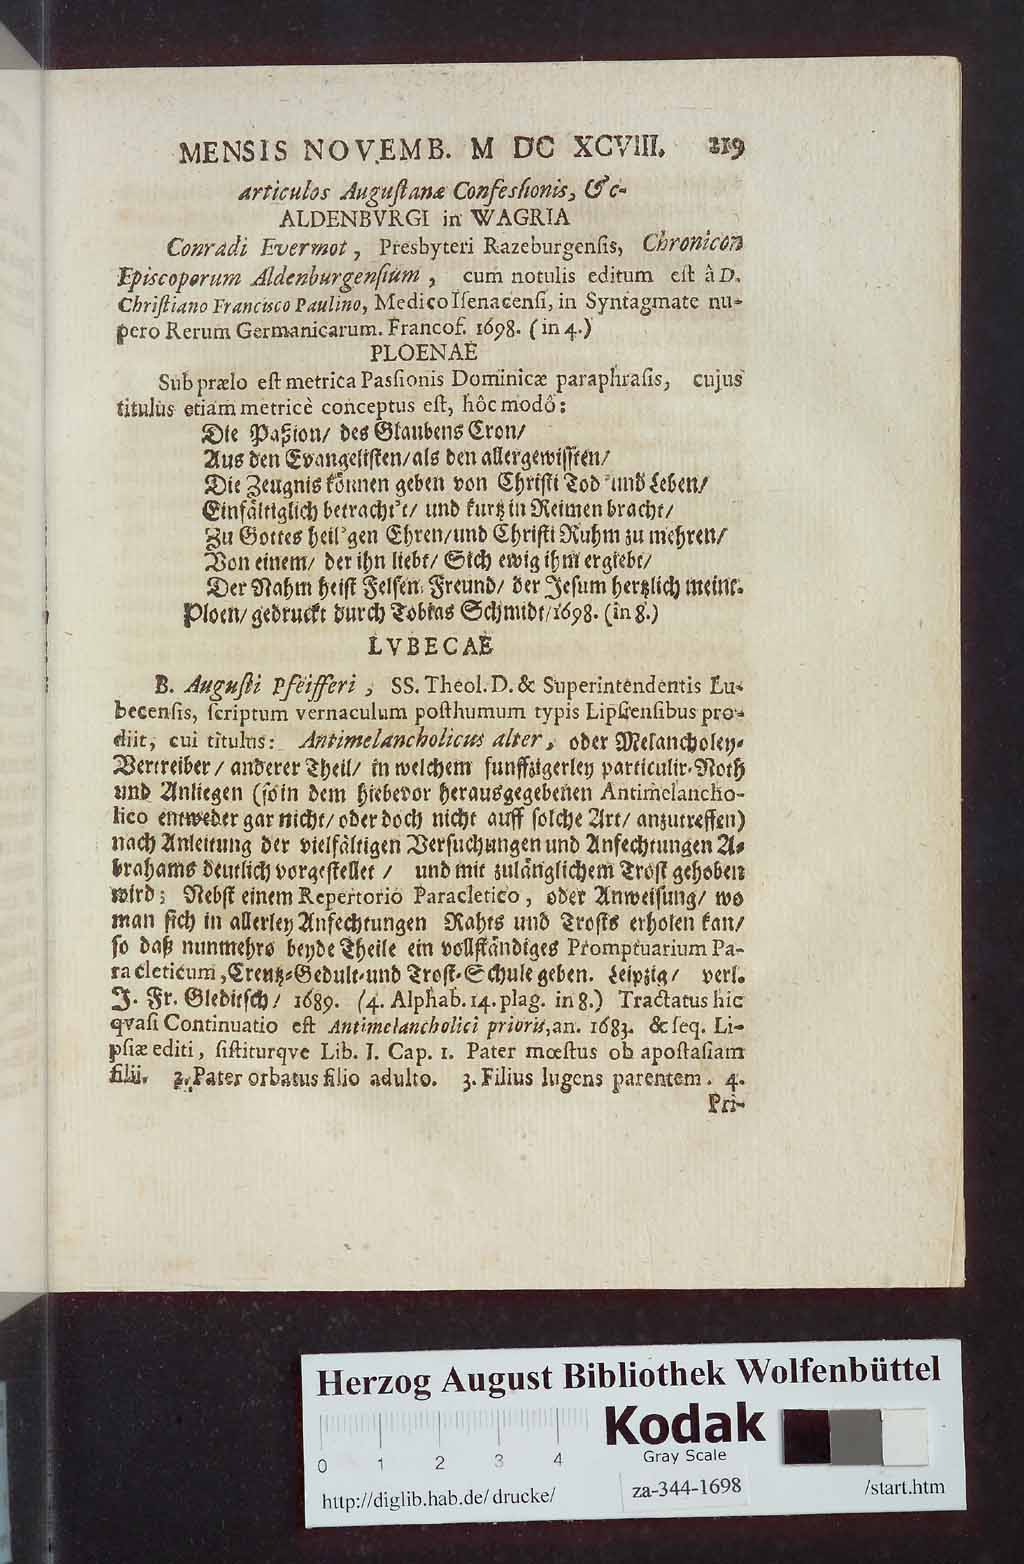 MENSIS NOVEMB. M DC XCVIII. 219
articulos Auguſtanæ Confeſsionis, &c-
ALDENBVRGI in WAGRIA
Conradi Evermot, Presbyteri Razeburgenſis, Chronicon
Epiſcoporum Aldenburgenſium, cum notulis editum eſt â D.
Chriſtiano Franciſco Paulino, Medico Iſenacenſi, in Syntagmate nu-
pero Rerum Germanicarum. Francof. 1698. (in 4.)
PLOENAE
Sub prælo eſt metrica Paſsionis Dominicæ paraphraſis, cujus
titulus etiam metricè conceptus eſt, hôc modô:
Die Paßion/ des Glaubens Cron/
Aus den Evangeliſten/ als den allergewiſſten/
Die Zeugnis können geben von Chriſti Tod und Leben/
Einfältiglich betracht't/ und kurtz in Reimen bracht/
Zu Gottes heil'gen Ehren/ und Chriſti Ruhm zu mehren/
Von einem/ der ihn liebt/ Sich ewig ihm ergiebt/
Der Nahm heiſt Felſen-Freund/ der Jeſum hertzlich meint.
Ploen/ gedruckt durch Tobias Schmidt/ 1698. (in 8.)
LVBECAE
B. Auguſti Pfeifferi, SS. Theol. D. & Superintendentis Lu-
becenſis, ſcriptum vernaculum poſthumum typis Lipſienſibus pro-
diit, cui titulus: Antimelancholicus alter, oder Melancholey-
Vertreiber/ anderer Theil/ in welchem funffzigerley particulir-Noth
und Anliegen (ſo in dem hiebevor herausgegebenen Antimelancho-
lico entweder gar nicht/ oder doch nicht auff ſolche Art/ anzutreffen)
nach Anleitung der vielfältigen Verſuchungen und Anfechtungen A-
brahams deutlich vorgeſtellet/ und mit zulänglichem Troſt gehoben
wird; Nebſt einem Repertorio Paracletico, oder Anweiſung/ wo
man ſich in allerley Anfechtungen Rahts und Troſts erholen kan/
ſo daß nunmehro beyde Theile ein vollſtändiges Promptuarium Pa-
racleticum, Creutz-Gedult- und Troſt-Schule geben. Leipzig/ verl.
J. Fr. Gleditſch/ 1689. (4. Alphab. 14. plag. in 8.) Tractatus hic
qvaſi Continuatio eſt Antimelancholici prioris, an. 1683. & ſeq. Li-
pſiæ editi, ſiſtiturqve Lib. I. Cap. 1. Pater mœſtus ob apoſtaſiam
filii. 2. Pater orbatus filio adulto. 3. Filius lugens parentem. 4.
Pri-
Herzog August Bibliothek Wolfenbüttel
Kodak
Gray Scale
0 1 2 3 4
http://diglib.hab.de/drucke/ za-344-1698 /start.htm